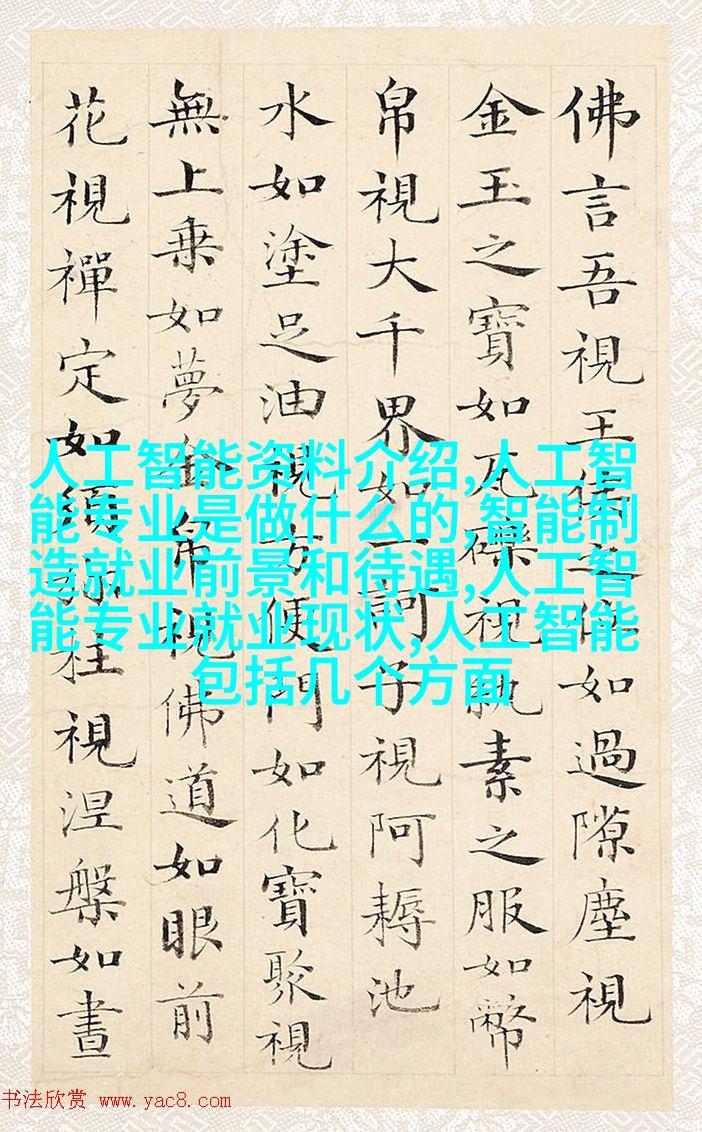 佛言吾視王侯之位如過隙塵視
金玉之寶如瓦礫視紈素之服如幣
帛視大千界如一訶子視阿耨池
水如塗足油視方便門如化寶聚視
無上乗如夢金帛視佛道如眼前
花視禪定如須彌柱視涅槃如晝
人工智能资料介绍,人工智
能专业是做什么的,智能制
造就业前景和待遇,人工智
能专业就业现状,人工智能
包括几个方面
书法欣赏 www.yac8.com